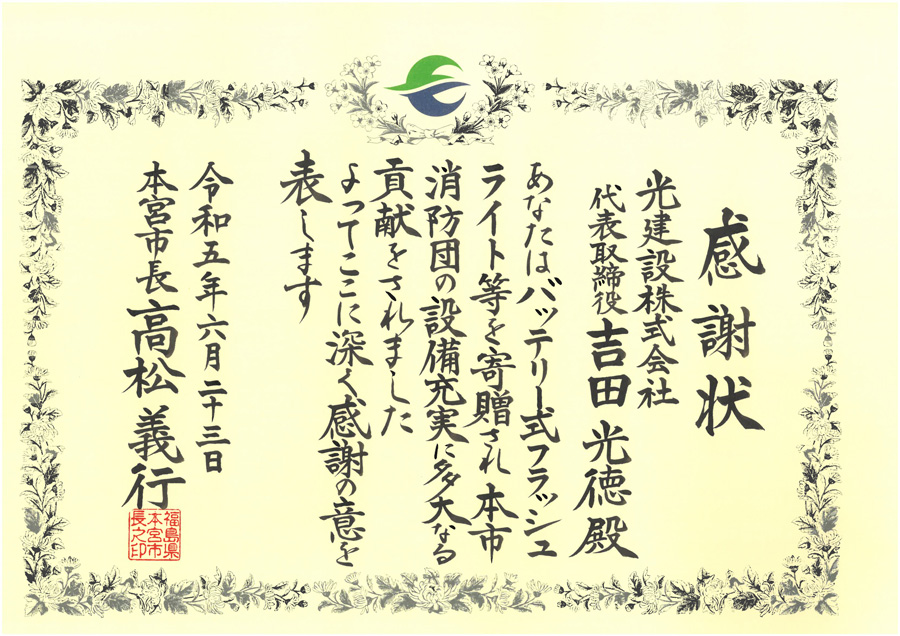 感謝状
光建設株式会社
代表取締役 吉田 光徳 殿
あなたはバッテリー式フラッシュ
ライト等を寄贈され本市
消防団の設備充実に多大なる
貢献をされました
よってここに深く感謝の意を
表します
令和五年六月二十三日
本宮市長 高松 義行
福島県
本宮市
長之印